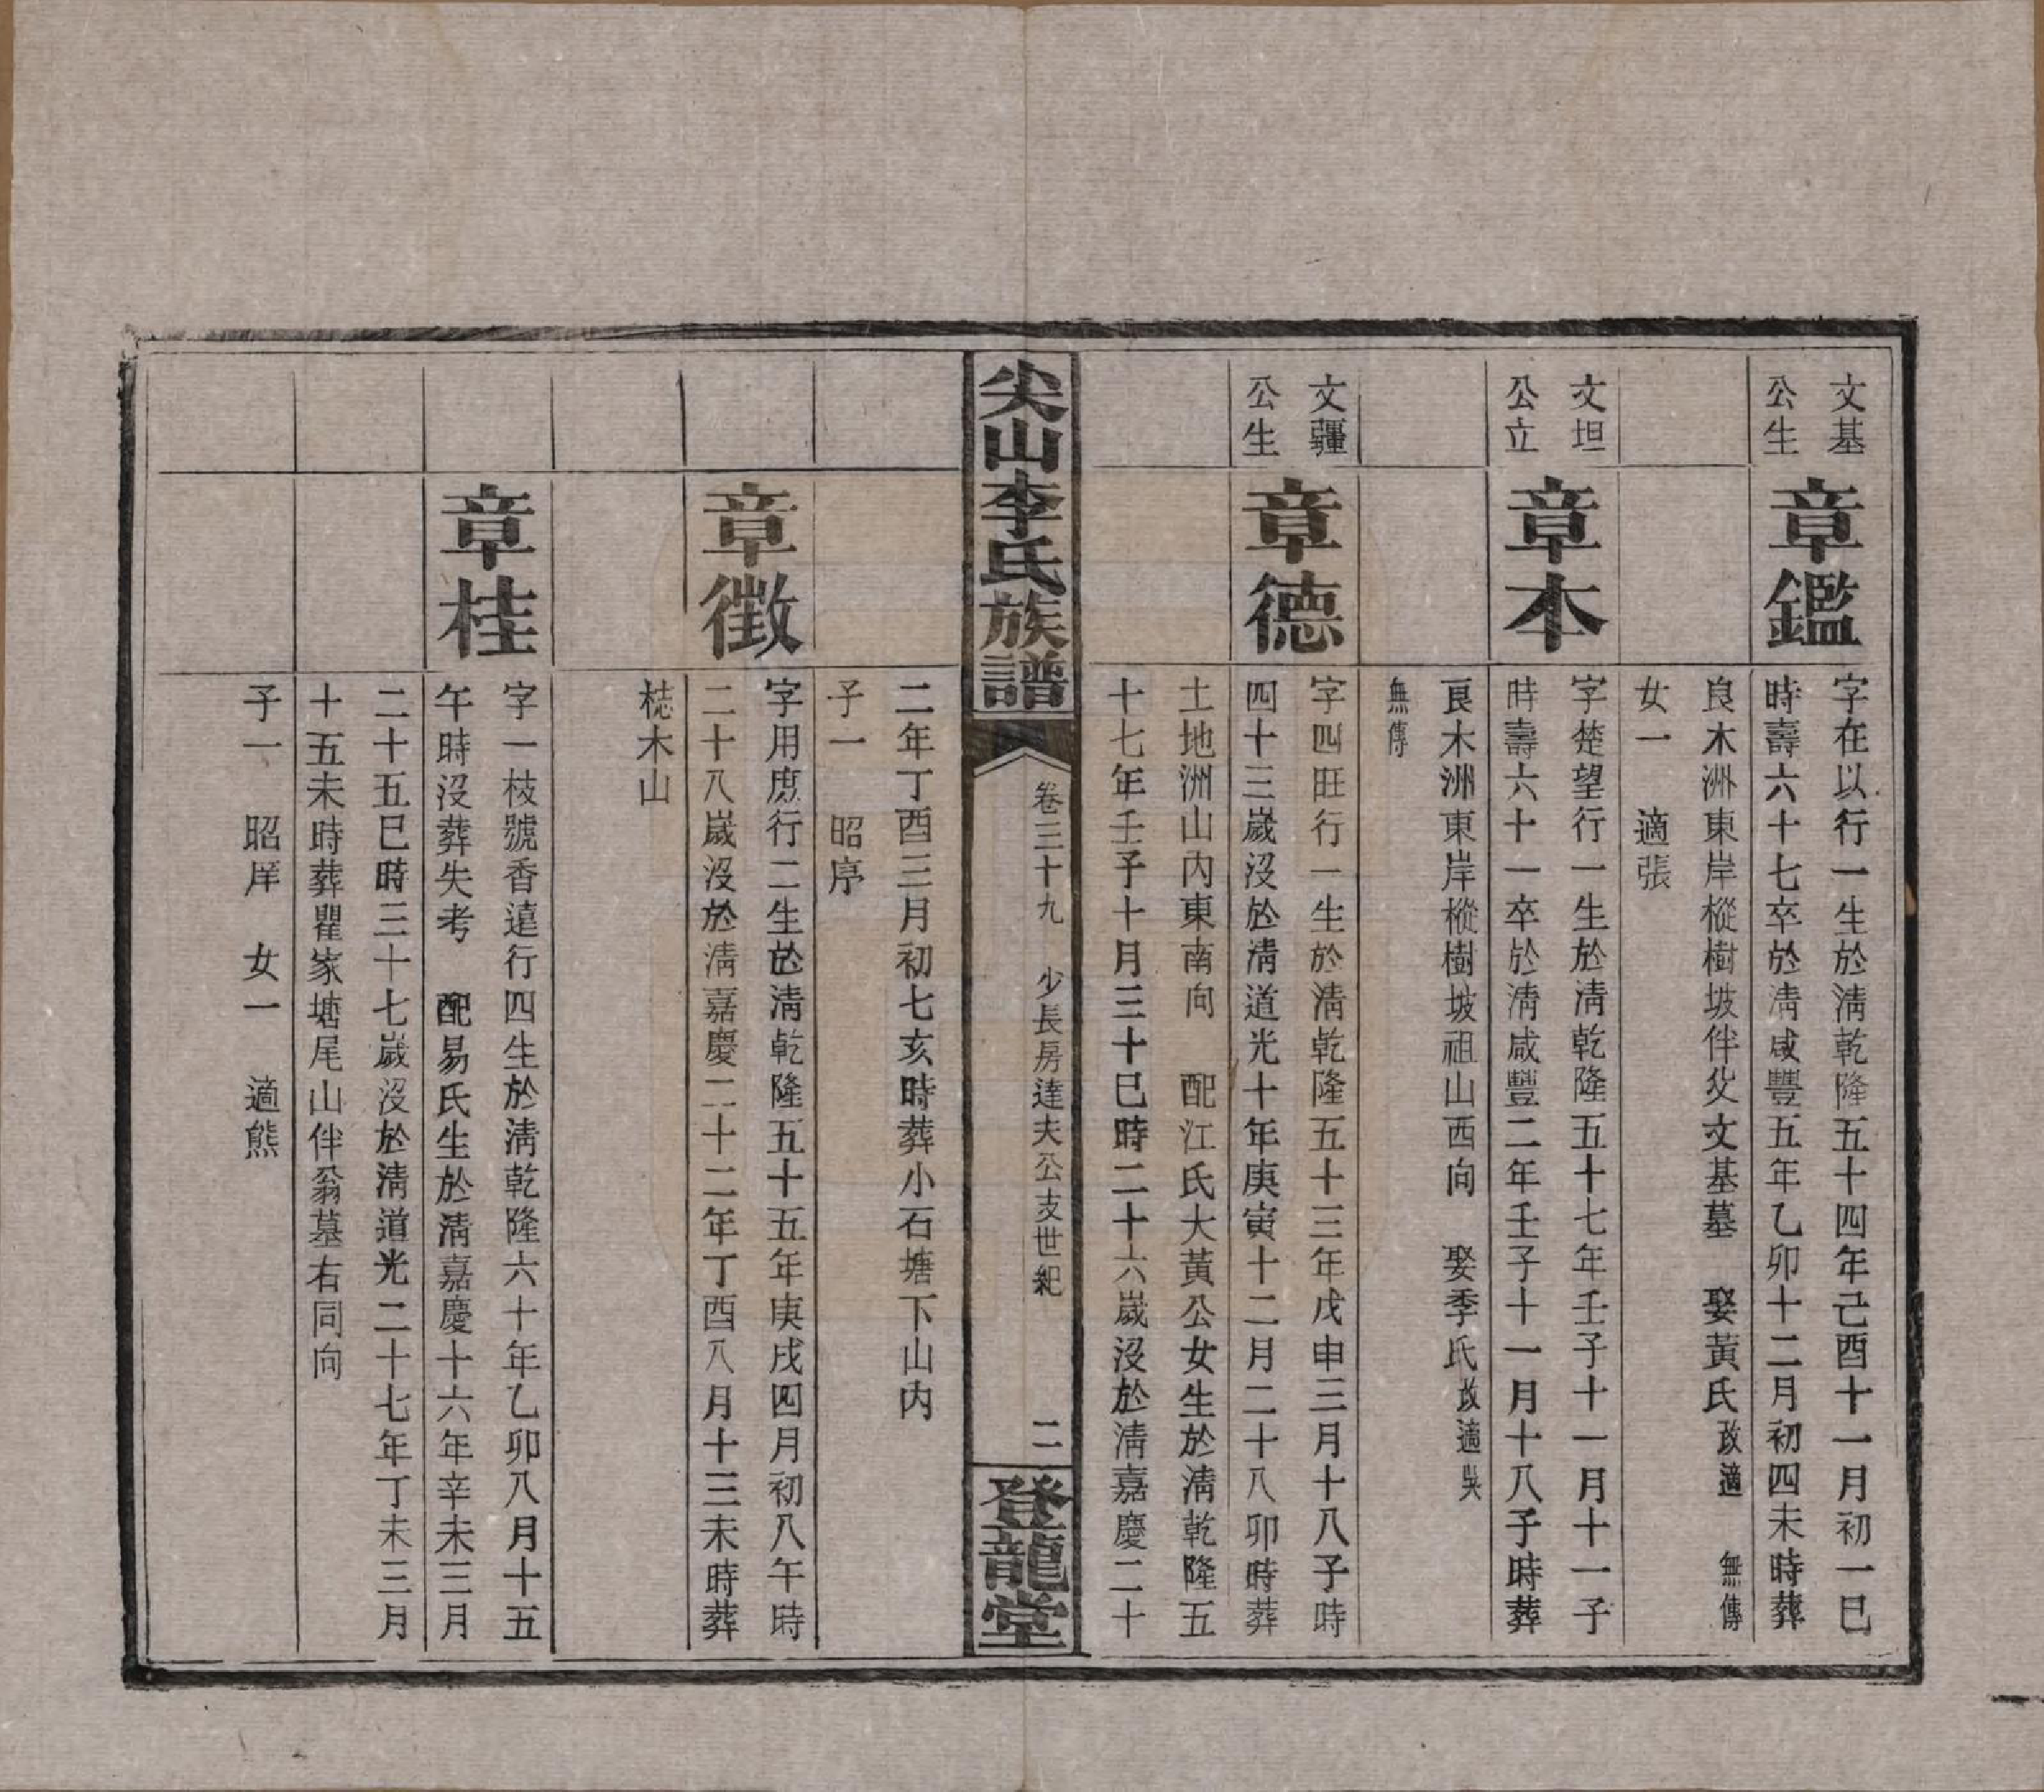 文基
公生
章鑑
字在以行一生於淸乾隆五十四年己酉十一月初一巳
時壽六十七卒於淸咸豐五年乙卯十二月初四未時葬
良木洲東岸樅樹坡伴父文基墓 娶黃氏改適 無傳
女一 適張
文坦
公立
章本
字楚望行一生於淸乾隆五十七年壬子十一月十一子
時壽六十一卒於淸咸豐二年壬子十一月十八子時葬
良木洲東岸樅樹坡祖山西向 娶季氏改適吳
無傳
文疆
公生
章德
字四旺行一生於淸乾隆五十三年戊申三月十八子時
四十三歲沒於淸道光十年庚寅十二月二十八卯時葬
土地洲山內東南向 配江氏大黃公女生於淸乾隆五
十七年壬子十月三十巳時二十六歲沒於淸嘉慶二十
尖山李氏族譜
卷三十九 少長房達夫公支世紀 二
登龍堂
二年丁酉三月初七亥時葬小石塘下山內
子一 昭序
章徵
字用庶行二生於淸乾隆五十五年庚戌四月初八午時
二十八歲沒於淸嘉慶二十二年丁酉八月十三未時葬
梽木山
章桂
字一枝號香遠行四生於淸乾隆六十年乙卯八月十五
午時沒葬失考 配易氏生於淸嘉慶十六年辛未三月
二十五巳時三十七歲沒於淸道光二十七年丁未三月
十五未時葬瞿家塘尾山伴翁墓右同向
子一 昭庠 女一 適熊